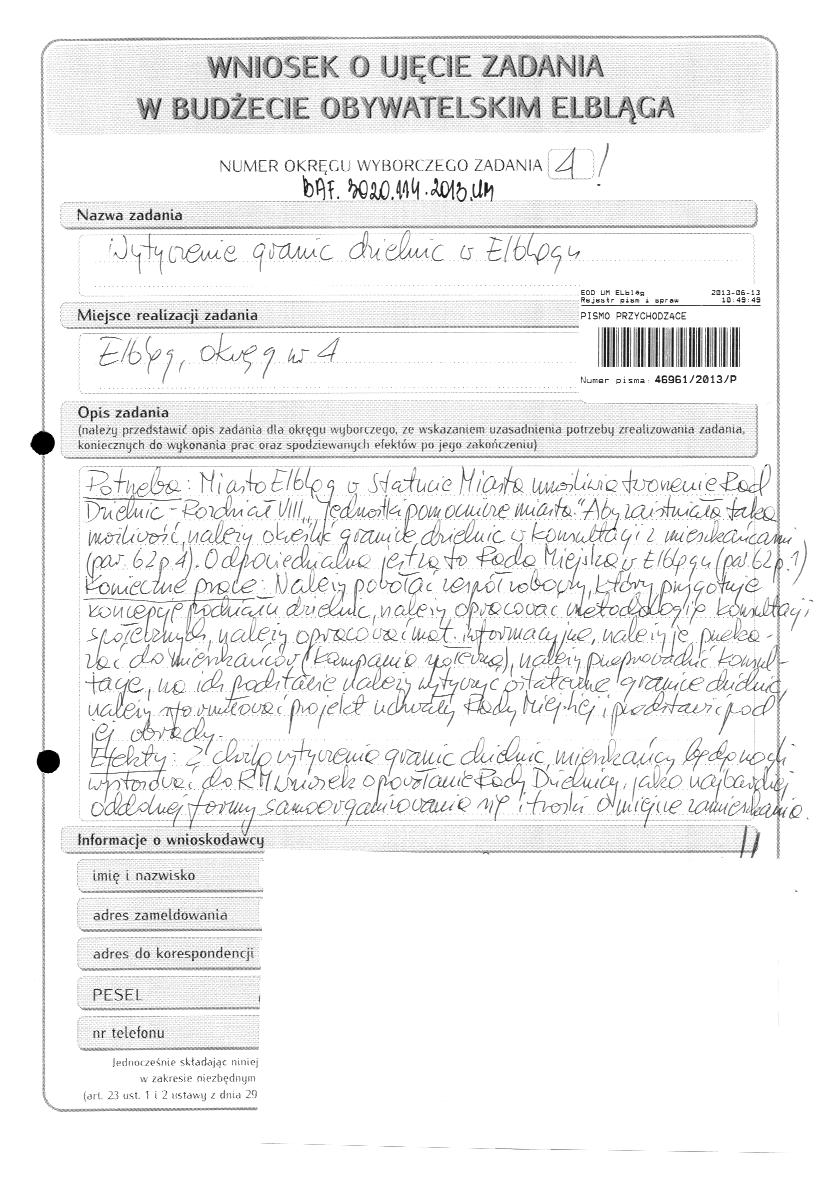 WNIOSEK O UJĘCIE ZADANIA
W BUDŻECIE OBYWATELSKIM ELBLĄGA
NUMER OKRĘGU WYBORCZEGO ZADANIA 4!
DAF. 3020.114.2013.UM
Nazwa zadania
Wytyczenie granic dzielnic w Elblągu
EOD UM ELbląg 2013-06-13
Rejestr pism i spraw 10:49:49
Miejsce realizacji zadania
PISMO PRZYCHODZĄCE
Elbląg, okręg nr 4
Numer pisma: 46961/2013/P
Opis zadania
(należy przedstawić opis zadania dla okręgu wyborczego, ze wskazaniem uzasadnienia potrzeby zrealizowania zadania,
koniecznych do wykonania prac oraz spodziewanych efektów po jego zakończeniu)
Potrzeba: Miasto Elbląg w Statucie Miasta umożliwia tworzenie Rad
Dzielnic - Rozdział VIII „Jednostki pomocnicze miasta". Aby zaistniała taka
możliwość, należy określić granice dzielnic w konsultacji z mieszkańcami
(par. 62 p. 4). Odpowiedzialna jest za to Rada Miejska w Elblągu (par. 62 p. 1)
Konieczne prace: Należy powołać zespół roboczy, który przygotuje
koncepcję podziału dzielnic, należy opracować metodologię konsultacji
społecznych, należy opracować mat. informacyjne, należy je przeka-
zać do mieszkańców (kampania społeczna), należy przeprowadzić konsul-
tacje, na ich podstawie należy wytyczyć ostateczne granice dzielnic,
należy sformułować projekt uchwały Rady Miejskiej i przedstawić pod
jej obrady.
Efekty: Z chwilą wytyczenia granic dzielnic, mieszkańcy będą mogli
wystosować do RM wniosek o powołanie Rady Dzielnicy, jako najbardziej
oddolnej formy samoorganizowania się i troski o miejsce zamieszkania.
Informacje o wnioskodawcy
imię i nazwisko
adres zameldowania
adres do korespondencji
PESEL
nr telefonu
Jednocześnie składając niniej
w zakresie niezbędnym
(art. 23 ust. 1 i 2 ustawy z dnia 29